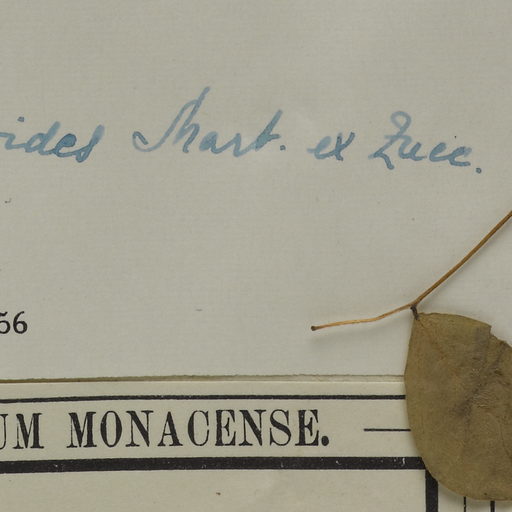 ides Mart. ex Zucc.
56
UM MONACENSE.